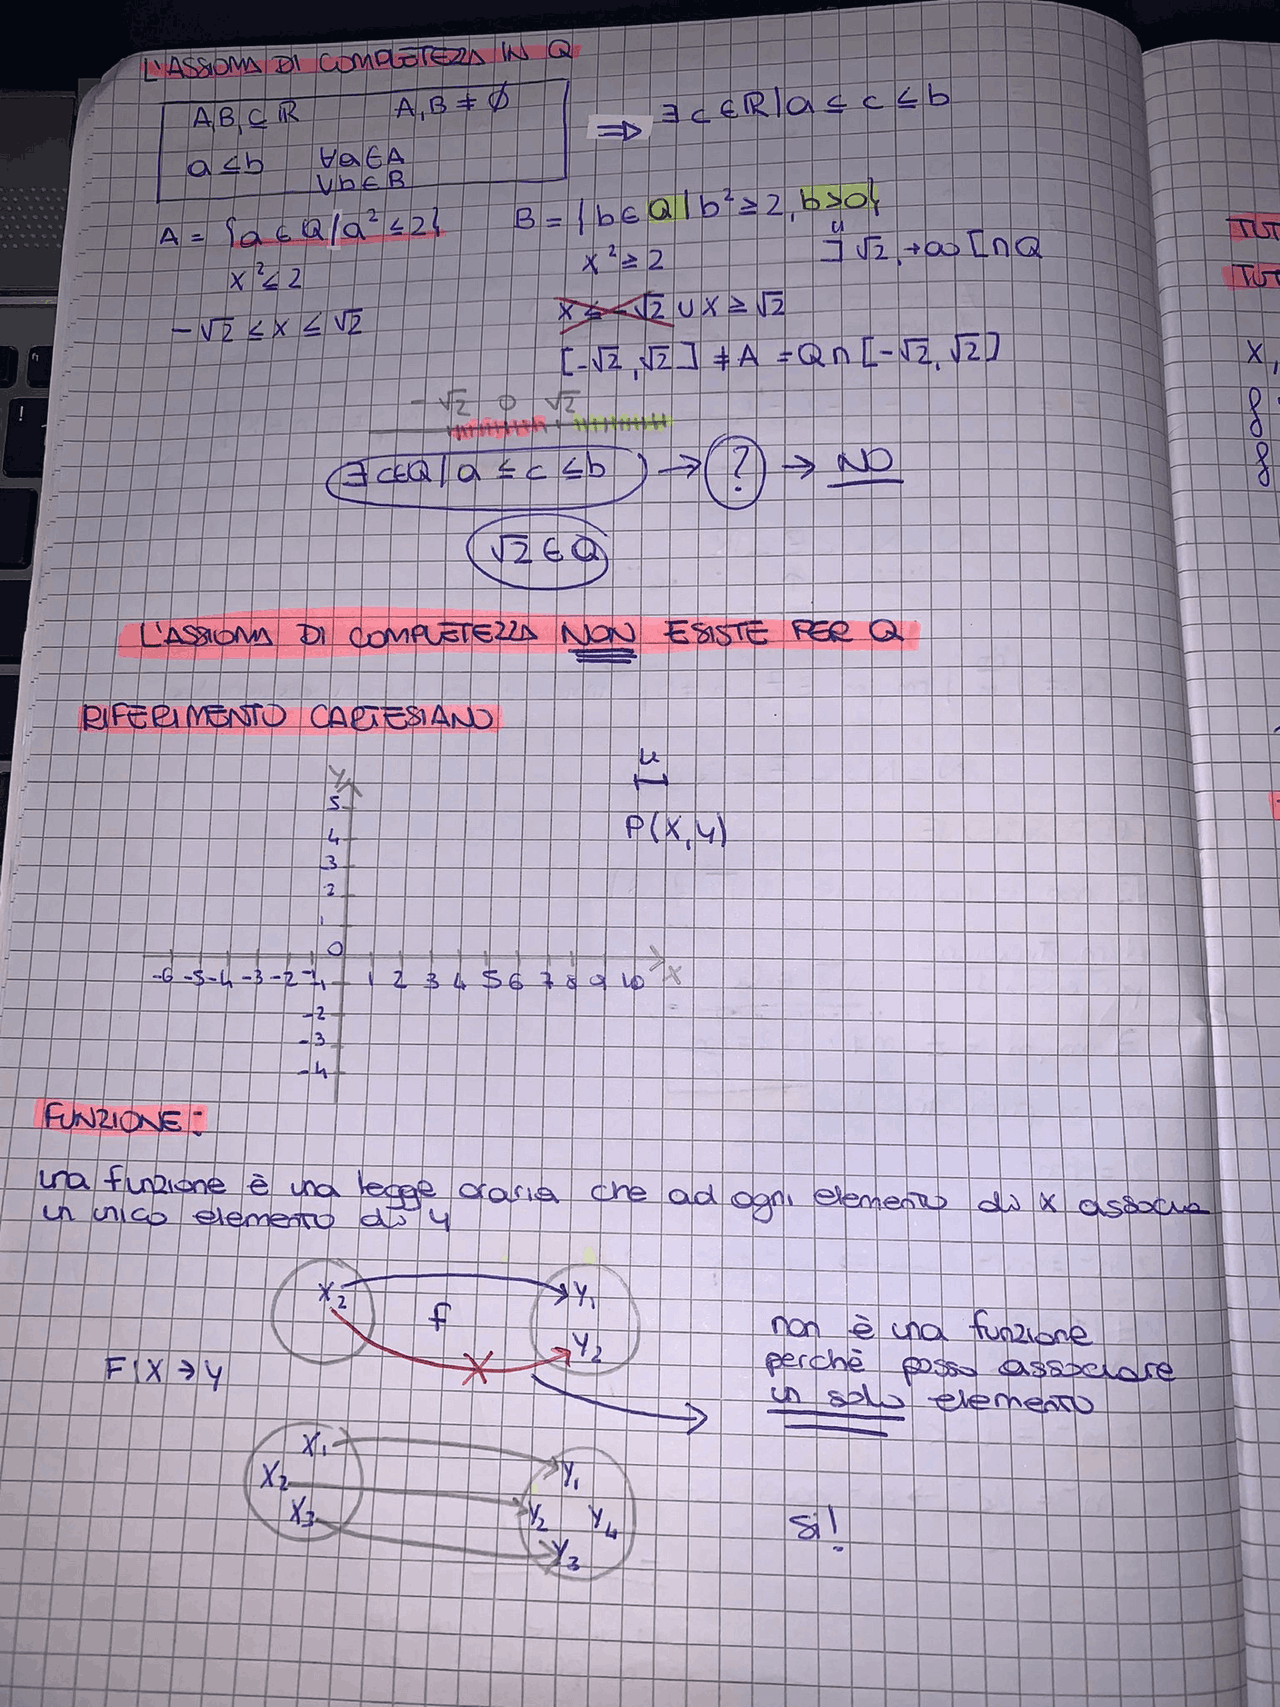 L'ASSIOMA DI COMPLETEZZA IN Q
A,B ⊆ ℝ A,B ≠ ∅ ⇒ ∃ c ∈ ℝ | a ≤ c ≤ b
a ≤ b ∀a ∈ A
∀b ∈ B
A = {a ∈ Q | a² ≤ 2} B = {b ∈ Q | b² ≥ 2, b>0}
x² ≤ 2 x² ≥ 2 ]√2, +∞[ ∩ Q
-√2 ≤ x ≤ √2 x ≤ -√2 ∪ x ≥ √2
[-√2, √2] ≠ A = Q ∩ [-√2, √2]
-√2 0 √2
∃ c ∈ Q | a ≤ c ≤ b → ? → NO
√2 ∈ Q
L'ASSIOMA DI COMPLETEZZA NON ESISTE PER Q
RIFERIMENTO CARTESIANO
u
P(x,y)
y
5
4
3
2
1
0
-6 -5 -4 -3 -2 -1 1 2 3 4 5 6 7 8 9 10 x
-2
-3
-4
FUNZIONE:
una funzione è una legge oraria che ad ogni elemento di x associa
un unico elemento di y
x₂ f y₁
y₂
F | X → Y
non è una funzione
perchè posso associare
un solo elemento
x₁ y₁
x₂ y₂ y₄
x₃ y₃
Si!
TUT
TUT
x,